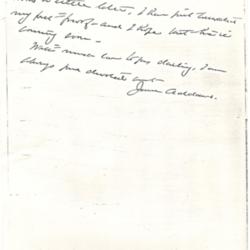 was a little later. I have just
my last proof - and I hope that
coming soon -
With much love to you darling, I am
always your devoted
Jane Addams.